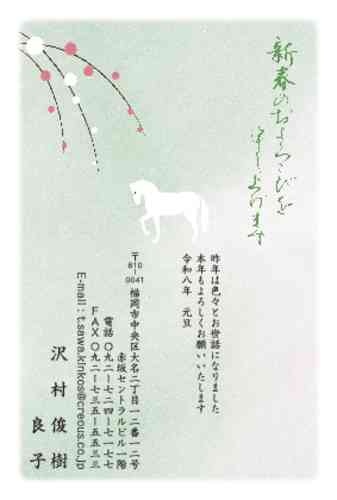 新春のおよろこびを
申し上げます
昨年は色々とお世話になりました
本年もよろしくお願いいたします
令和八年　元旦
〒810-0041　福岡市中央区大名二丁目一二番一二号
赤坂セントラルビル一階
電話　〇九二ー七二四ー七一七七
ＦＡＸ　〇九二ー七三五ー五五三三
E-mail : t.sawa.kinkos@creous.co.jp
沢村俊樹
良子